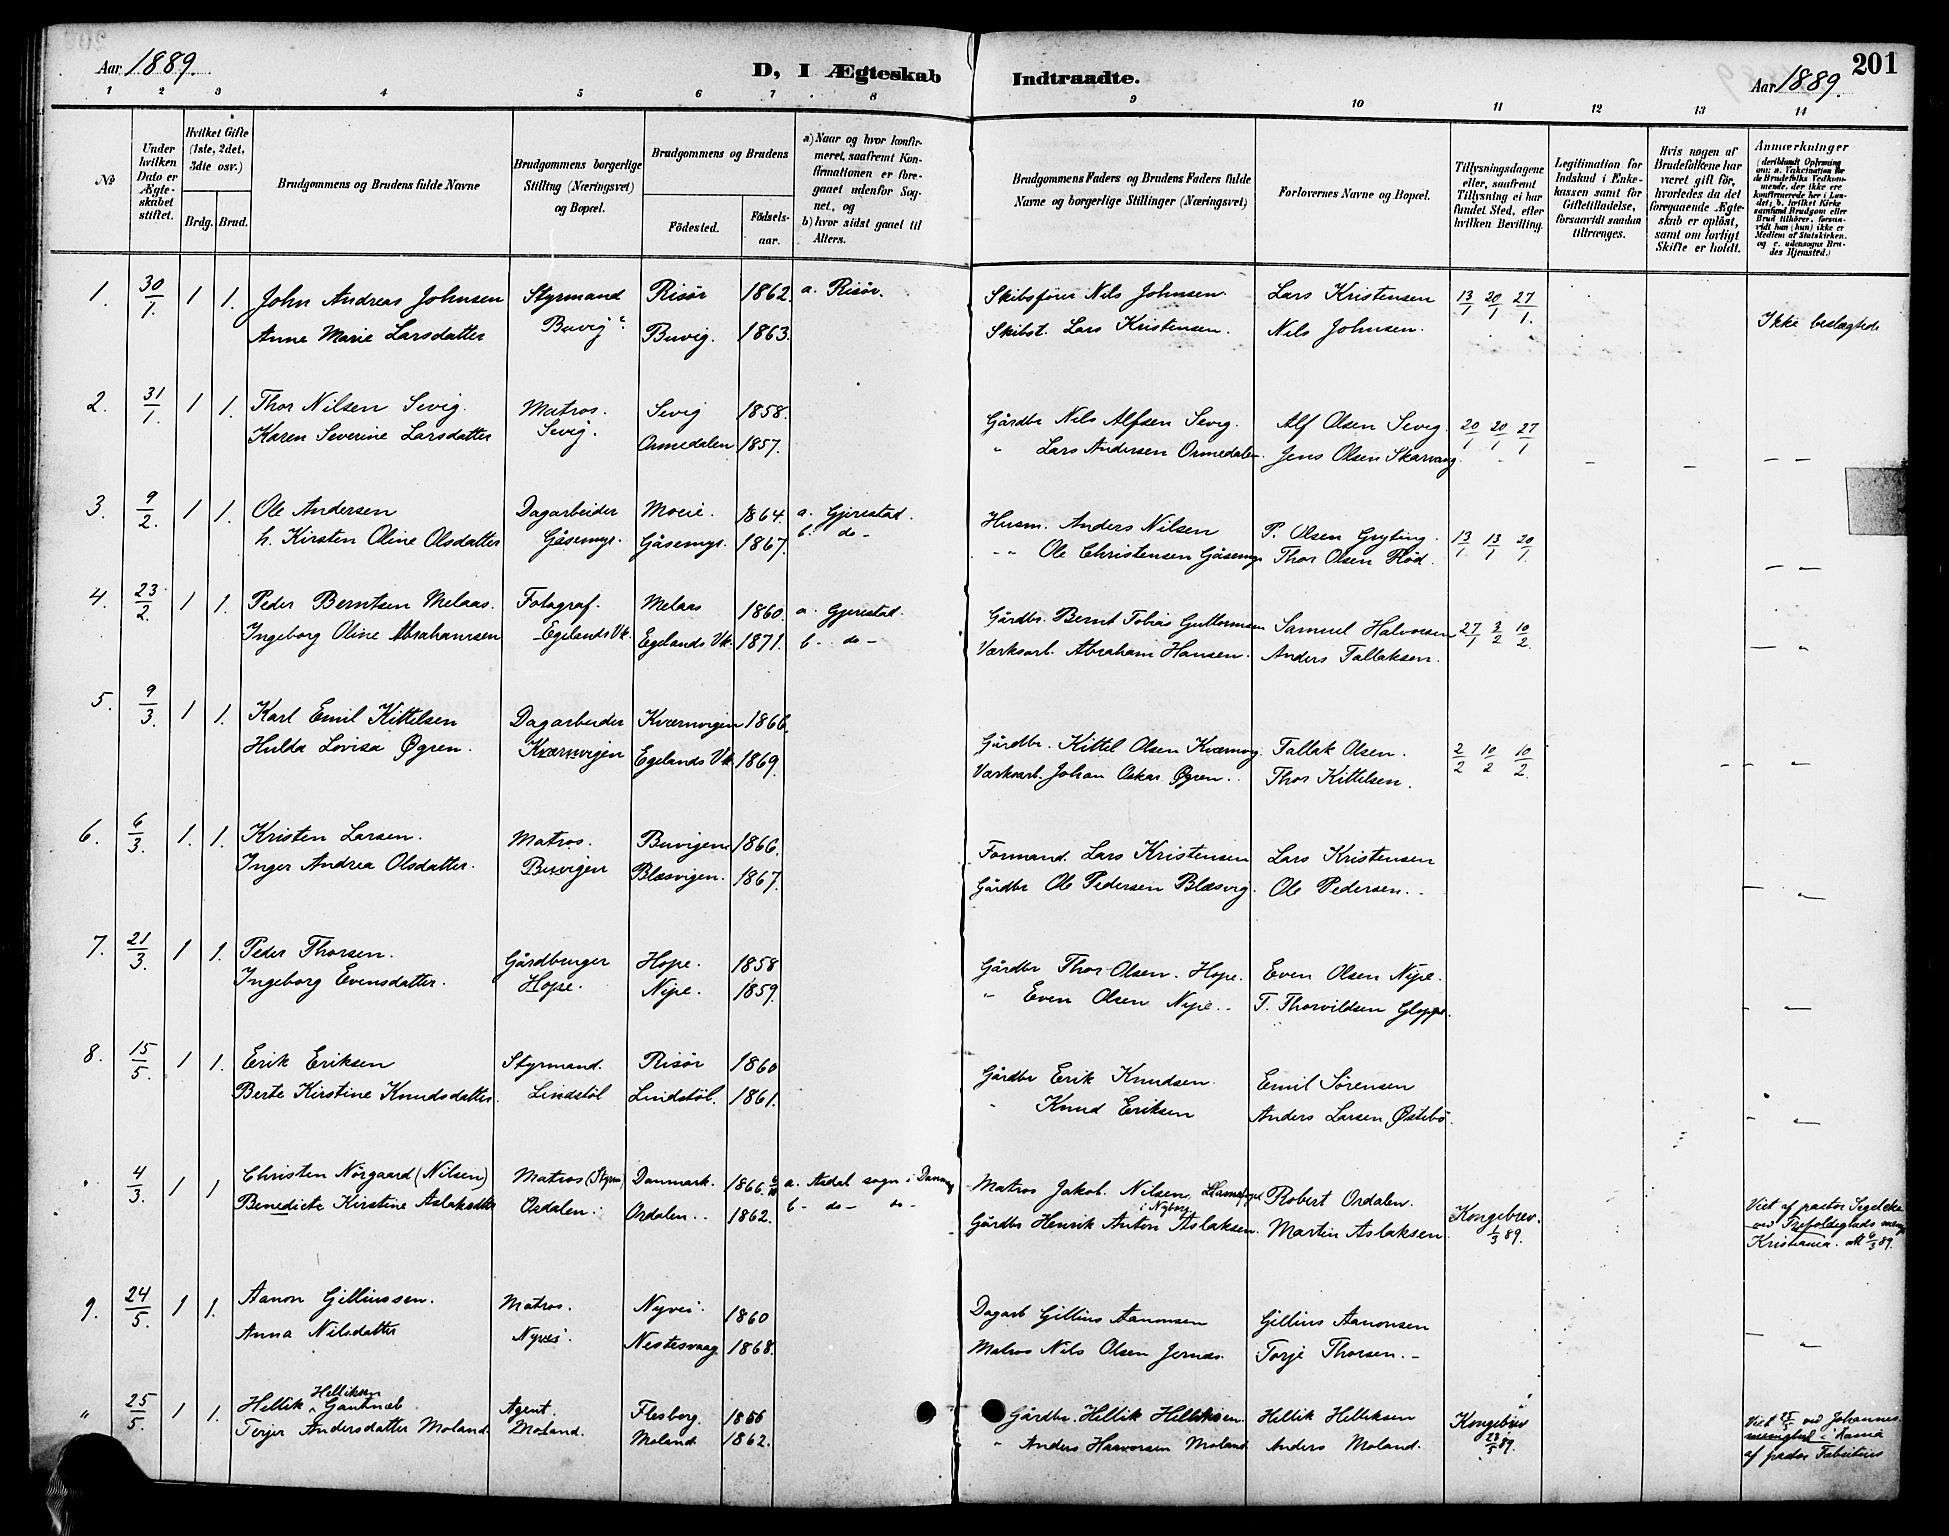 Aar 1889.
D, I Ægteskab Indtraadte.
Aar 1889.
201
1 2 3 4 5 6 7 8 9 10 11 12 13 14
No
Under hvilken Dato er Ægteskabet stiftet.
Hvilket Gifte (1ste, 2det, 3die osv.)
Brdg. Brud.
Brudgommens og Brudens fulde Navne
Brudgommens borgerlige Stilling (Næringsvei) og Bopæl.
Brudgommens og Brudens
Fødested.
Fødsels-aar.
a) Naar og hvor konfirmeret, saafremt Konfirmationen er foregaaet udenfor Sognet, og
b) hvor sidst gaaet til Alters.
Brudgommens Faders og Brudens Faders fulde Navne og borgerlige Stillinger (Næringsvei)
Forlovernes Navne og Bopæl.
Tillysningsdagene eller, saafremt Tillysning ei har fundet Sted, efter hvilken Bevilling.
Legitimation for Indskud i Enkekassen samt for Giftetilladelse, forsaavidt saadan tiltrænges.
Hvis nogen af Brudefolkene har været gift før, hvorledes da det foregaaende Ægteskab er opløst, samt om lovligt Skifte er holdt.
Anmærkninger
(deriblandt Oplysning om: a. Vakcination for de Brudefolks Vedkommende, der ikke ere konfirmerede her i Landet; b. hvilket Kirkesamfund Brudgom eller Brud tilhører, forsaavidt han (hun) ikke er Medlem af Statskirken, og c. udensogns Brudes Hjemsted.)
1. 30/1. 1 1. John Andreas Johnsen Styrmand Risør 1862. a. Risør. Skibsfører Nils Johnsen. Lars Kristensen 13/1 20/1 27/1.
Anne Marie Larsdatter Buvig. Buvig. 1863. Skibst. Lars Kristensen. Nils Johnsen. Ikke beslægtede
2. 31/1. 1 1. Thor Nilsen Sevig. Matros. Sevig 1858. Gårdbr Nils Alfsen Sevig. Alf Olsen Sevig. 20/1 20/1 27/1
Karen Severine Larsdatter Sevig. Ormedalen 1857. " Lars Andersen Ormedalen. Jens Olsen Skarvang. — —
3. 9/2. 1 1. Ole Andersen Dagarbeider Moeie. 1864. a. Gjerestad. Husm. Anders Nilsen P. Olsen Gryting. 13/1 13/1 20/1.
h. Kirsten Oline Olsdatter Gåsemyr. Gåsemyr. 1867. b. do - " Ole Christensen Gåsemyr Thor Olsen Rød. — —
4. 23/2. 1 1. Peder Berntsen Melaas. Fotograf. Melaas 1860. a. Gjerestad. Gårdbr. Bernt Tobias Guttormsen Samuel Halvorsen 27/1 3/2 10/2.
Ingeborg Oline Abrahamsen Egelands Vk. Egelands Vk. 1871. b. do - Værksarb. Abraham Hansen. Anders Tallaksen. — "
5. 9/3. 1 1. Karl Emil Kittelsen Dagarbeider Kværnvigen 1866. Gårdbr. Kittel Olsen Kværnvig. Tallak Olsen. 2/2 10/2 10/2.
Hulda Lovisa Øgren. Kværnvigen Egelands Vk 1869. Værksarb. Johan Oskar Øgren. Thor Kittelsen. — —
6. 6/3. 1. 1. Kristen Larsen. Matros. Buvigen 1866. Formand. Lars Kristensen Lars Kristensen
Inger Andrea Olsdatter. Buvigen Blæsvigen. 1867. Gårdbr Ole Pedersen Blæsvig. Ole Pedersen. — —
7. 21/3. 1 1. Peder Thorsen. Gårdbruger Hope. 1858 Gårdbr Thor Olsen. Hope. Even Olsen Nipe.
Ingeborg Evensdatter. Hope. Nipe. 1859. " Even Olsen Nipe. T. Thorvildsen Gloppe. — —
8. 15/5. 1 1. Erik Eriksen Styrmand. Risør 1860 Gårdbr Erik Knudsen. Emil Sørensen
Berte Kirstine Knudsdatter. Lindstøl Lindstøl. 1861. " Knud Eriksen Anders Larsen Østebø. — —
" 4/3. 1 1 Christen Nørgaard (Nilsen) Matros (Styrm) Danmark. 1866. a. Aadal sogn i Danm Matros Jakob. Nilsen, i Nyborg Robert Ordalen.
Benedicte Kirstine Aslaksdtr Ordalen. Ordalen. 1862. b - do - do - Gårdbr Henrik Anton Aslaksen. Martin Aslaksen Kongebrev. 1/3 89. Viet af pastor Segelcke ved Trefoldigheds menig Kristiania. att 6/3 89.
9. 24/5. 1 1. Aanon Gjelliussen. Matros. Nyvei. 1860 Dagarb Gjellius Aanonsen Gjellius Aanonsen
Anna Nilsdatter Nyvei. Nestesvaag 1868. Matros Nils Olsen Jernæs. Torje Thorsen. — "
" 25/5. 1 1. Hellik Helliksen Gautnæb Agent. Flesberg. 1856 Gårdbr. Hellik Helliksen. Hellik Helliksen Kongebrev 23/5 89. Viet 25/5 ved Johannes
Terjer Andersdatter Moland. Moland. Moland. 1862. " Anders Haavorsen Moland Anders Moland. menighed i Krania af pastor Fabritius